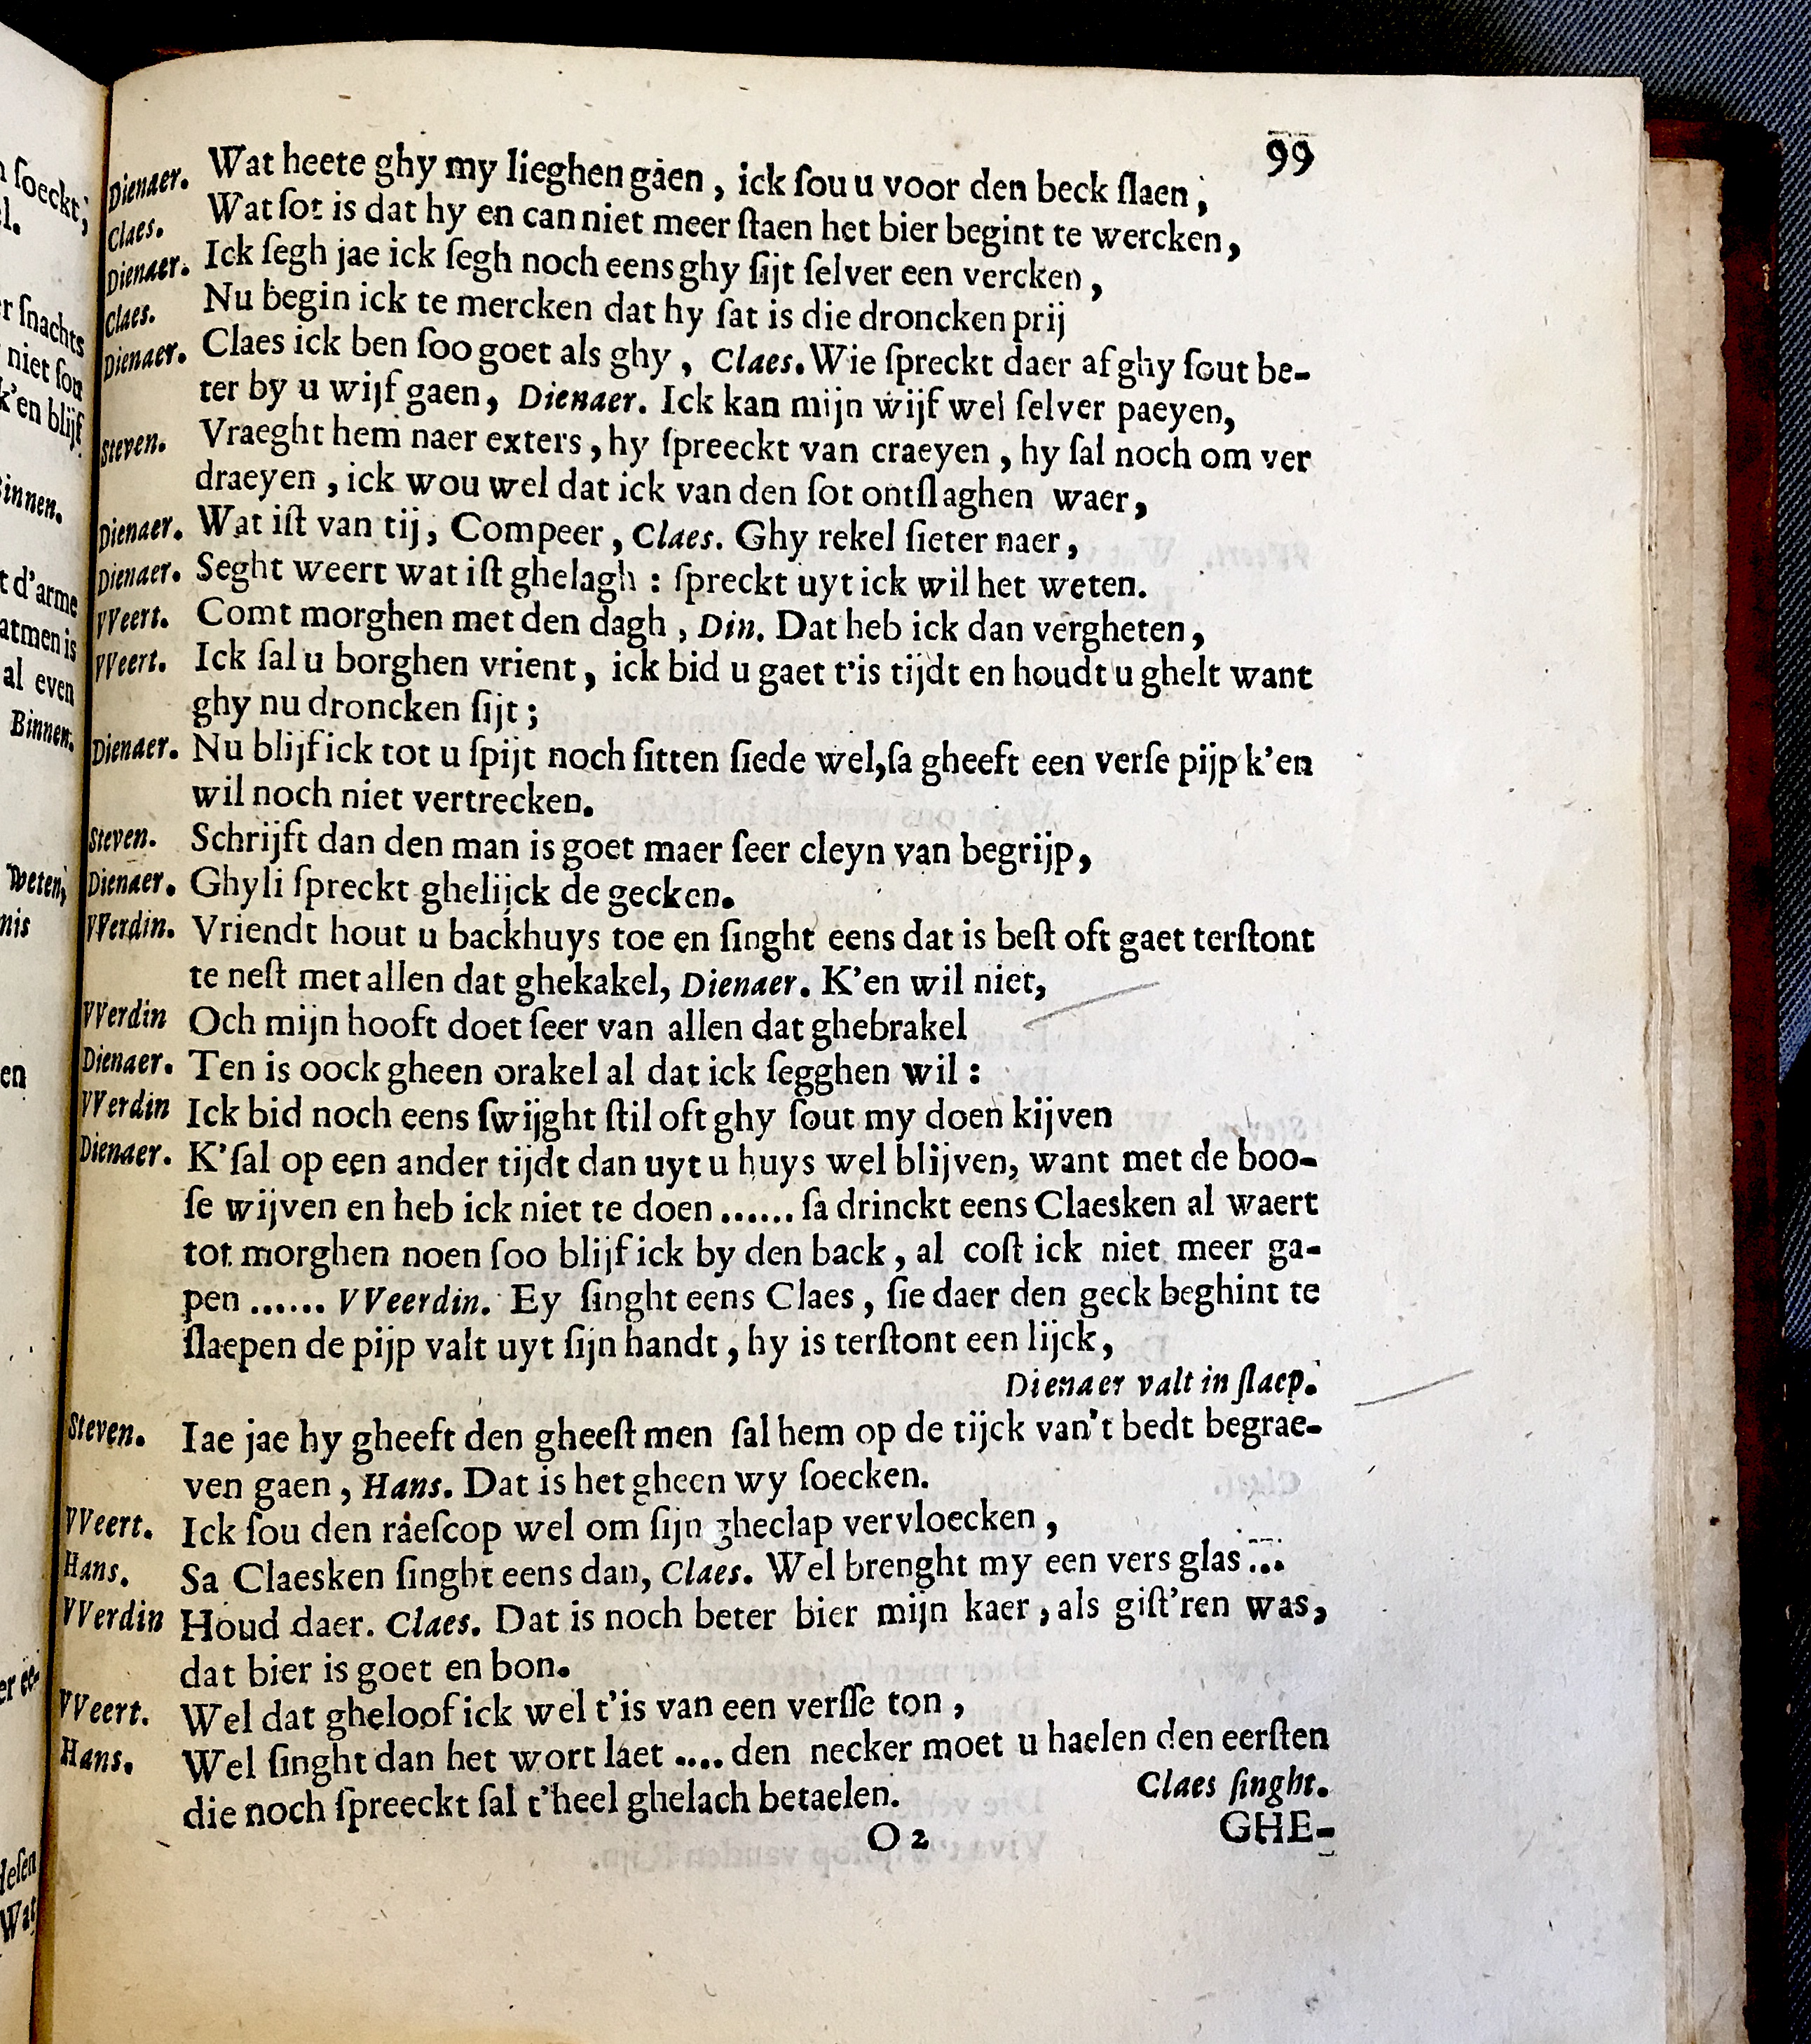 99
Dienaer. Wat heete ghy my lieghen gaen, ick ſou u voor den beck ſlaen,
Claes. Wat ſot is dat hy en can niet meer ſtaen het bier begint te wercken,
Dienaer. Ick ſegh jae ick ſegh noch eens ghy ſijt ſelver een vercken,
Claes. Nu begin ick te mercken dat hy ſat is die droncken prij
Dienaer. Claes ick ben ſoo goet als ghy, Claes. Wie ſpreckt daer af ghy ſout be-
ter by u wijf gaen, Dienaer. Ick kan mijn wijf wel ſelver paeyen,
Steven. Vraeght hem naer exters, hy ſpreeckt van craeyen, hy ſal noch om ver
draeyen, ick wou wel dat ick van den ſot ontſlaghen waer,
Dienaer. Wat iſt van tij, Compeer, Claes. Ghy rekel ſieter naer,
Dienaer. Seght weert wat iſt ghelagh: ſpreckt uyt ick wil het weten.
VVeert. Comt morghen met den dagh, Din. Dat heb ick dan vergheten,
VVeert. Ick ſal u borghen vrient, ick bid u gaet t'is tijdt en houdt u ghelt want
ghy nu droncken ſijt;
Dienaer. Nu blijf ick tot u ſpijt noch ſitten ſiede wel, ſa gheeft een verſe pijp k'en
wil noch niet vertrecken.
Steven. Schrijft dan den man is goet maer ſeer cleyn van begrijp,
Dienaer. Ghyli ſpreckt ghelijck de gecken.
VVerdin. Vriendt hout u backhuys toe en ſinght eens dat is beſt oft gaet terſtont
te neſt met allen dat ghekakel, Dienaer. K'en wil niet,
VVerdin Och mijn hooft doet ſeer van allen dat ghebrakel
Dienaer. Ten is oock gheen orakel al dat ick ſegghen wil:
VVerdin Ick bid noch eens ſwijght ſtil oft ghy ſout my doen kijven
Dienaer. K'ſal op een ander tijdt dan uyt u huys wel blijven, want met de boo-
ſe wijven en heb ick niet te doen ...... ſa drinckt eens Claesken al waert
tot morghen noen ſoo blijf ick by den back, al coſt ick niet meer ga-
pen ...... VVeerdin. Ey ſinght eens Claes, ſie daer den geck beghint te
ſlaepen de pijp valt uyt ſijn handt, hy is terſtont een lijck,
Dienaer valt in ſlaep.
Steven. Iae jae hy gheeft den gheeſt men ſal hem op de tijck van't bedt begrae-
ven gaen, Hans. Dat is het gheen wy ſoecken.
VVeert. Ick ſou den raeſcop wel om ſijn gheclap vervloecken,
Hans. Sa Claesken ſinght eens dan, Claes. Wel brenght my een vers glas ...
VVerdin Houd daer. Claes. Dat is noch beter bier mijn kaer, als giſt'ren was,
dat bier is goet en bon.
VVeert. Wel dat gheloof ick wel t'is van een verſſe ton,
Hans. Wel ſinght dan het wort laet .... den necker moet u haelen den eerſten
die noch ſpreeckt ſal t'heel ghelach betaelen.
Claes ſinght.
O 2
GHE-